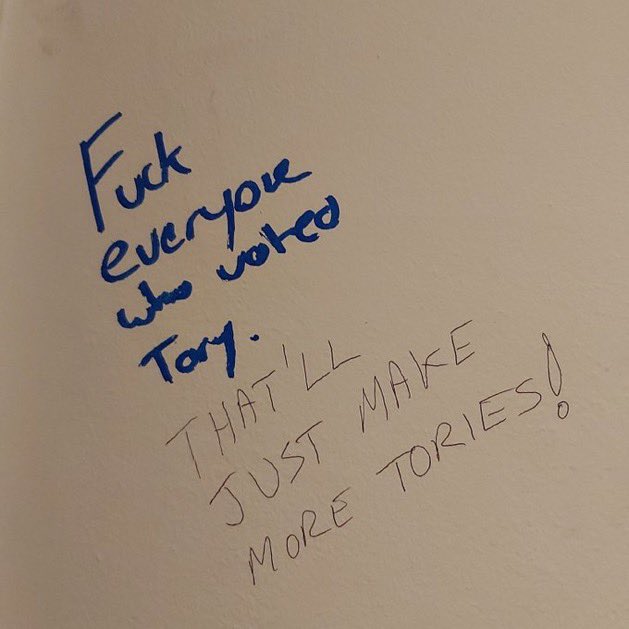 Fuck
everyone
who voted
Tory.
THAT'LL
JUST MAKE
MORE TORIES!